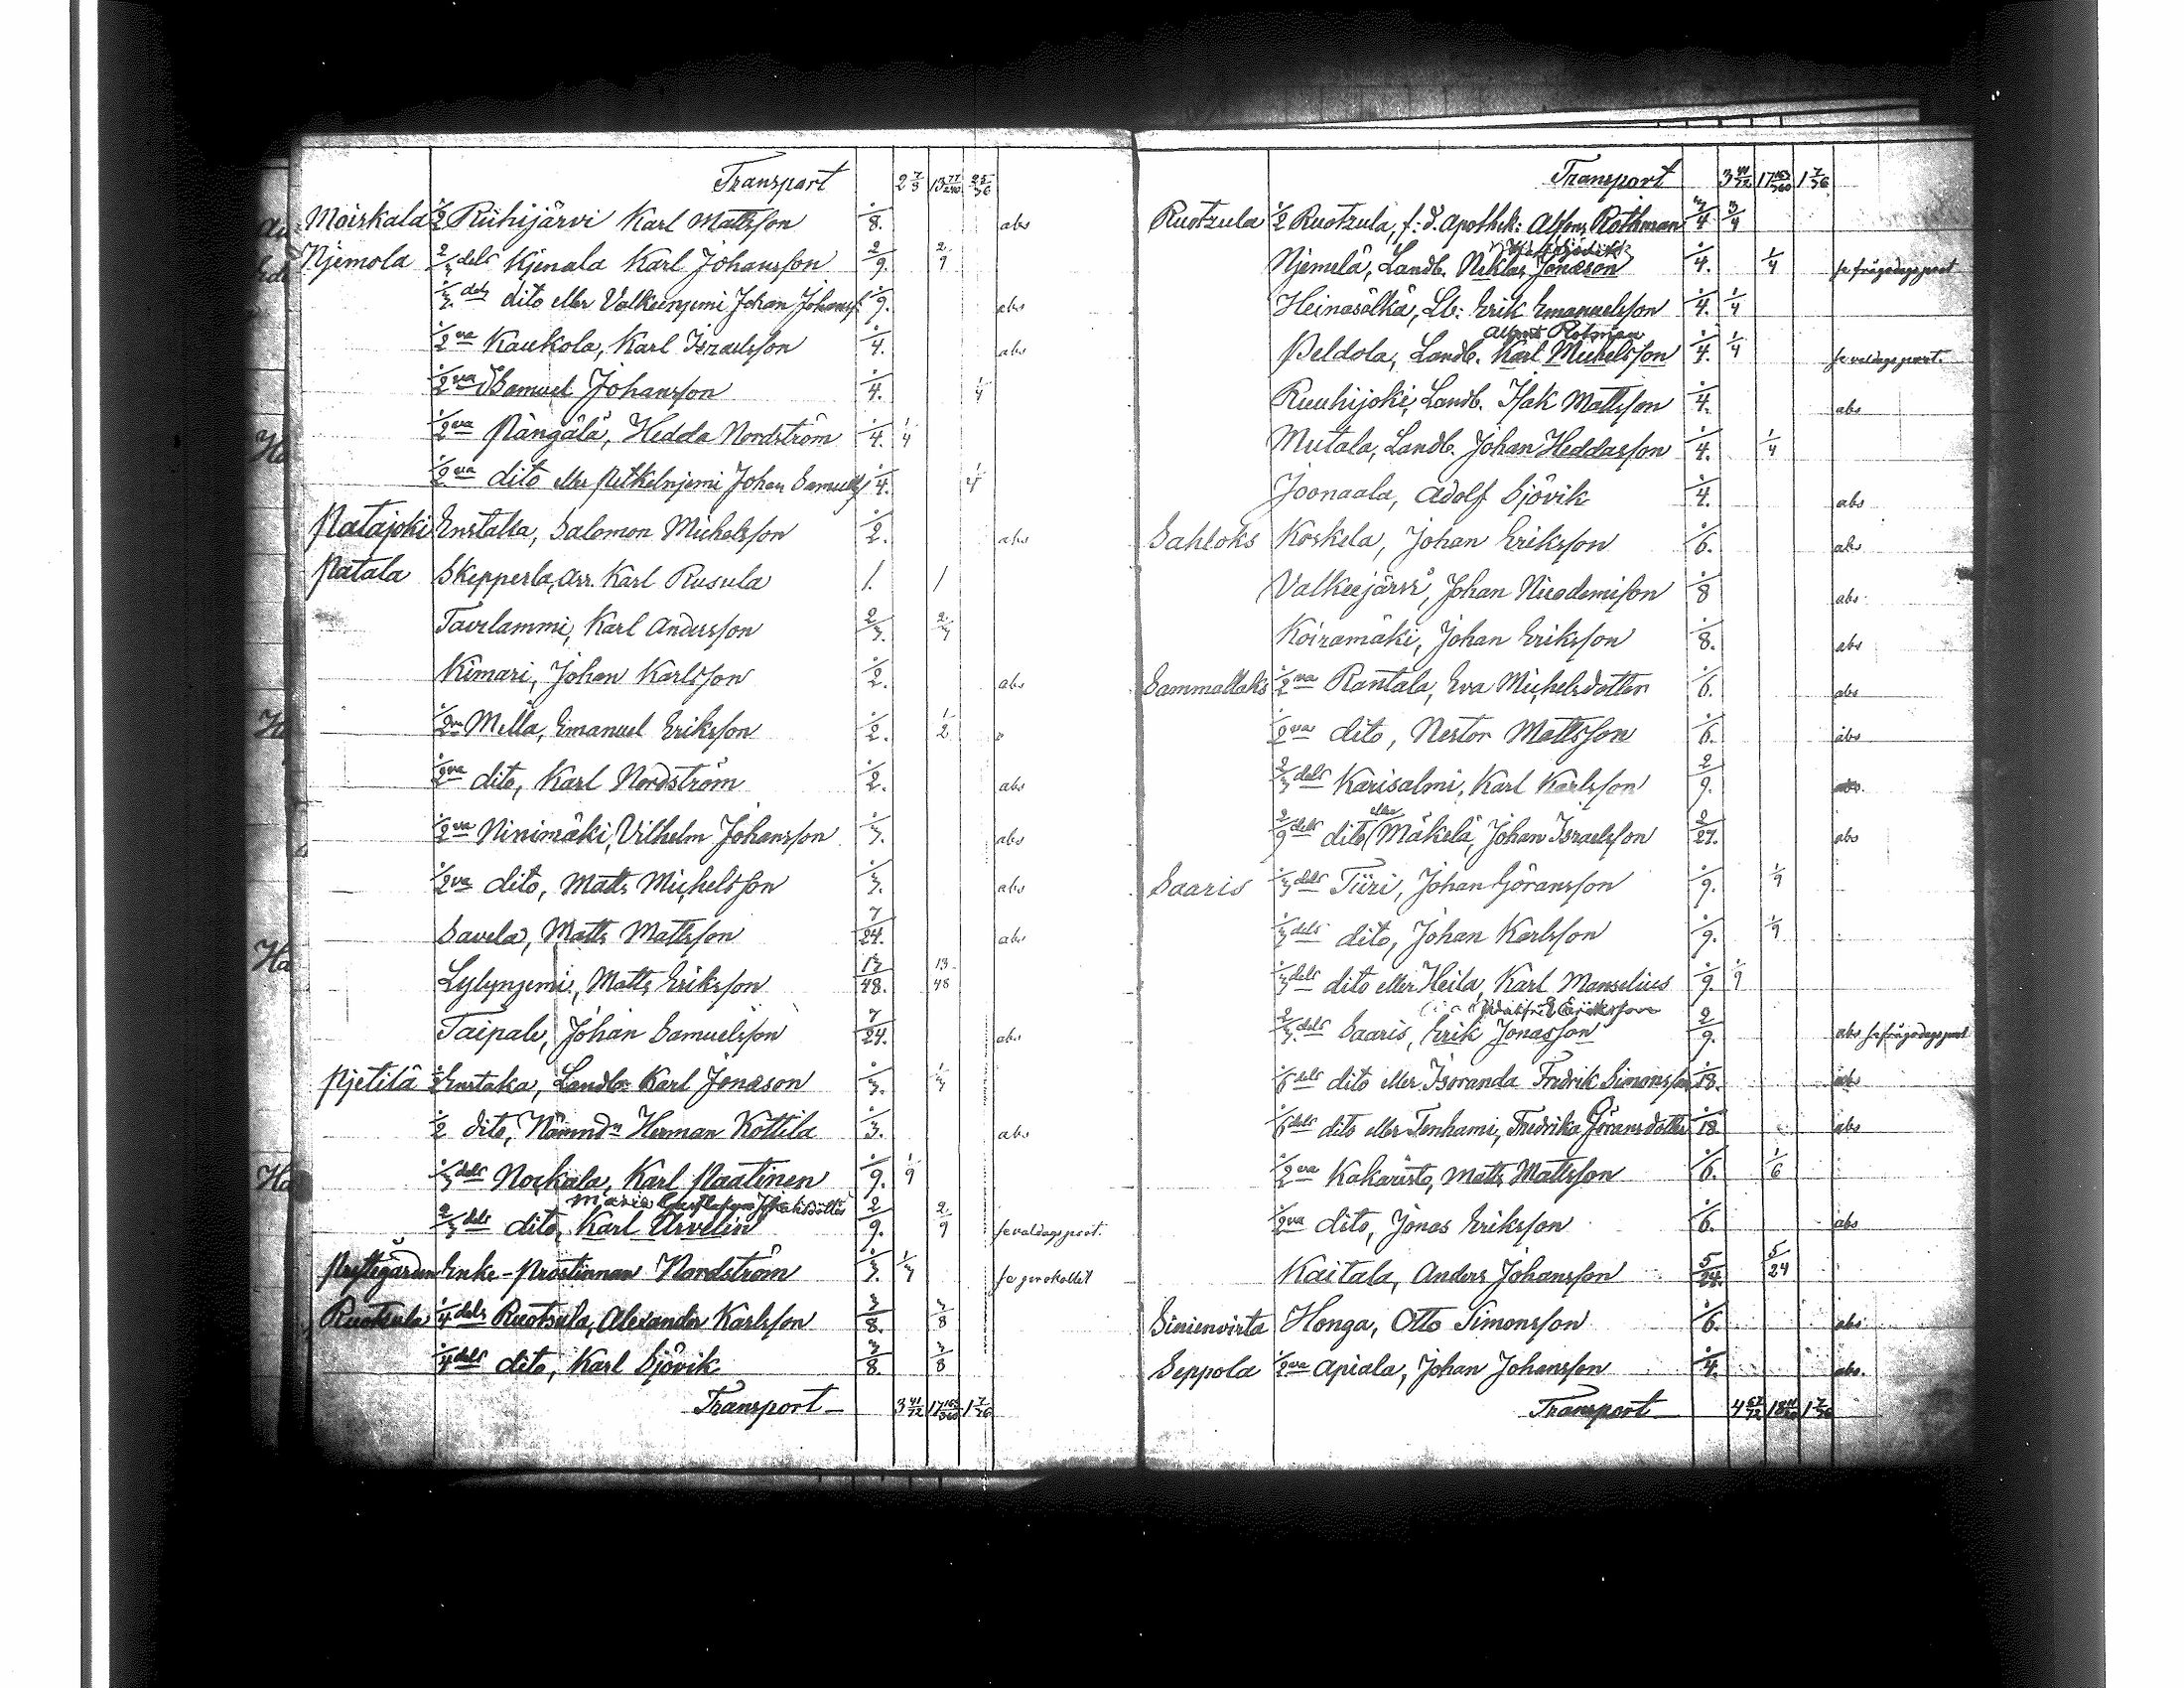 Transport 2 7/9 13 77/240 25/36
Moiskala 1/2 Riihijärvi Karl Mattsson 1/8. abs
Njemola 2/3 dels Kjenala Karl Johansson 2/9. 2/9
1/3 dels dito eller Valkeenjemi Johan Johanss. 1/9. abs
1/2 va Kaukola, Karl Israelsson 1/4. abs
1/2 va Samuel Johansson 1/4. 1/4
1/2 va Pångälä, Hedda Nordström 1/4. 1/4
1/2 va dito eller Petkelnjemi Johan Samuelss 1/4. 1/4
Patajoki Enstaka, Salomon Michelsson 1/2. abs
Patala Skepperla, Arr. Karl Rusula 1. 1
Taurlammi, Karl Andersson 2/3. 2/3
Kimari, Johan Karlsson 1/2. abs
1/2 va Mella, Emanuel Eriksson 1/2. 1/2
1/2 va dito, Karl Nordström 1/2. abs
1/2 va Ninimäki, Vilhelm Johansson 1/3. abs
1/2 va dito, Matts Michelsson 1/3. abs
Savela, Matts Mattsson 7/24. abs
Lylynjemi, Matts Eriksson 13/48. 13/48
Taipale, Johan Samuelsson 7/24. abs
Pjetilä Enstaka, Landb. Karl Jonasson 1/3. 1/3
1/2 dito, Nämndn Herman Kottila 1/3. abs
1/3 dels Nockala, Karl Paatinen 1/9. 1/9
Maria Johansdotter
2/3 dels dito, Karl Arvelin 2/9. 2/9 se valdagsprot.
Prestegården Enke-Prostinnan Nordström 1/3. 1/3 se protokollet
Ruotsula 1/4 dels Ruotsula, Alexander Karlsson 3/8. 3/8
1/4 dels dito, Karl Sjövik 3/8. 3/8
Transport 3 41/72 17 163/360 1 7/36
Transport 3 41/72 17 163/360 1 7/36
Ruotzula 1/2 Ruotzula, f: d. Apothek: Alfons Rothman 3/4. 3/4
Njemelä, Landb. Niklas Jonasson 1/4. 1/4 se frågodagsprot
Heinasälkä, Lb: Erik Emanuelsson 1/4. 1/4
Alfons Rotman
Peldola, Landb. Karl Michelsson 1/4. 1/4 se valdagsprot.
Ruuhijoki, Landb. Isak Mattsson 1/4. abs
Mutala, Landb. Johan Heddasson 1/4. 1/4
Joonaala, Adolf Sjövik 1/4. abs
Sahloks Koskela, Johan Eriksson 1/6. abs
Valkeejärvi, Johan Nicodemisson 1/8 abs
Koiramäki, Johan Eriksson 1/8. abs
Sammallaks 1/2 va Rantala, Eva Michelsdotter 1/6. abs
1/2 va dito, Nestor Mattsson 1/6. abs
2/3 dels Karisalmi, Karl Karlsson 2/9. abs.
eller
2/9 dels dito Mäkelä, Johan Israelsson 2/27. abs
Saaris 1/3 dels Tiiri, Johan Göransson 1/9. 1/9
1/3 dels dito, Johan Karlsson 1/9. 1/9
1/3 dels dito eller Heila, Karl Manselius 1/9. 1/9
Eriksson
2/3 dels Saaris, Erik Jonasson 2/9. abs se frågodagsprot
1/6 dels dito eller Isoranda Fredrik Simonsson 1/18. abs
1/6 dels dito eller Tenhami, Fredrika Göransdotter 1/18. abs
1/2 va Kakaristo, Matts Mattsson 1/6. 1/6
1/2 va dito, Jonas Eriksson 1/6. abs
Kaitala, Anders Johansson 5/24. 5/24
Sinienvirta Honga, Otto Simonsson 1/6. abs
Seppola 1/2 va Apiala, Johan Johansson 1/4. abs.
Transport 4 67/72 1 7/36